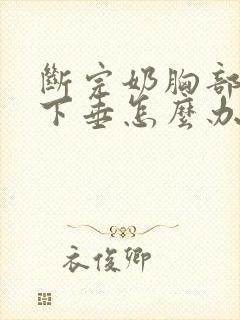 斷完奶胸部
下垂怎麼办
衣俊卿